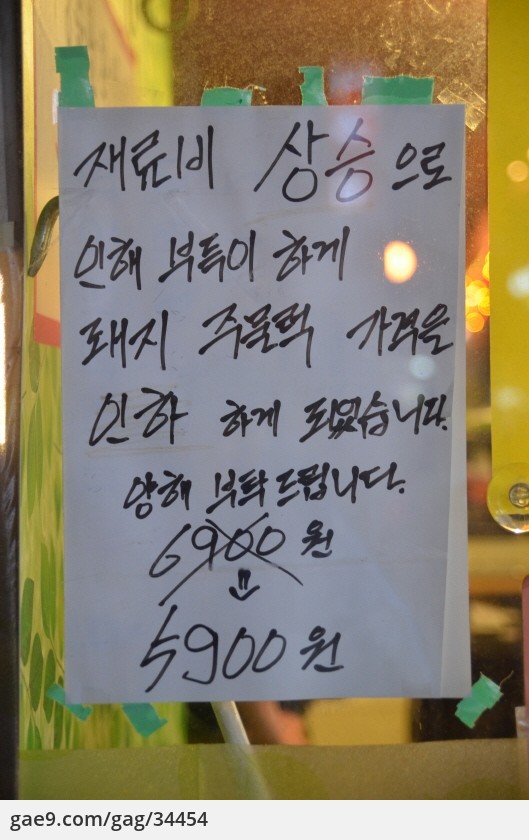 재류비 상승으로
인해 부득이 하게
돼지 주물럭 가격을
인하 하게 되었습니다.
양해 부탁드립니다.
6900 원
⇓
5900 원
gae9.com/gag/34454